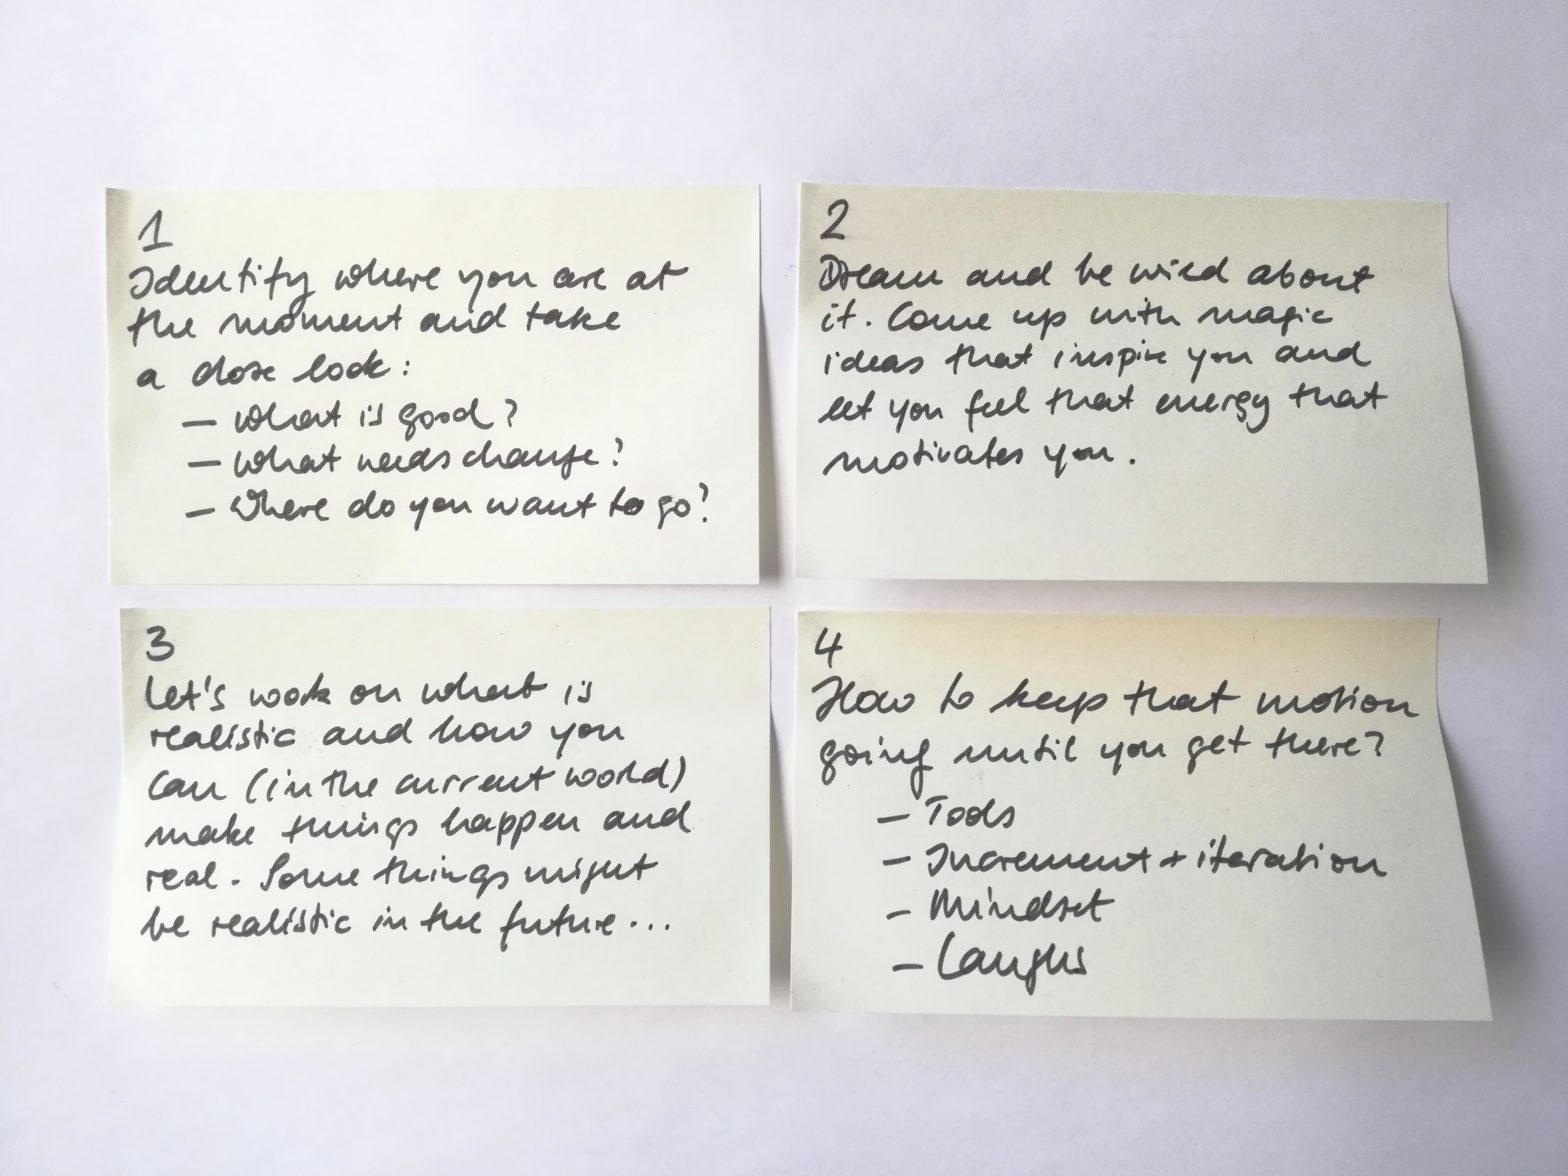 1
Identify where you are at
the moment and take
a close look:
– What is good?
– What needs change?
– Where do you want to go?
2
Dream and be wild about
it. Come up with magic
ideas that inspire you and
let you feel that energy that
motivates you.
3
Let's work on what is
realistic and how you
can (in the current world)
make things happen and
real. Some things might
be realistic in the future...
4
How to keep that motion
going until you get there?
– Tools
– Increment + iteration
– Mindset
– Laughs